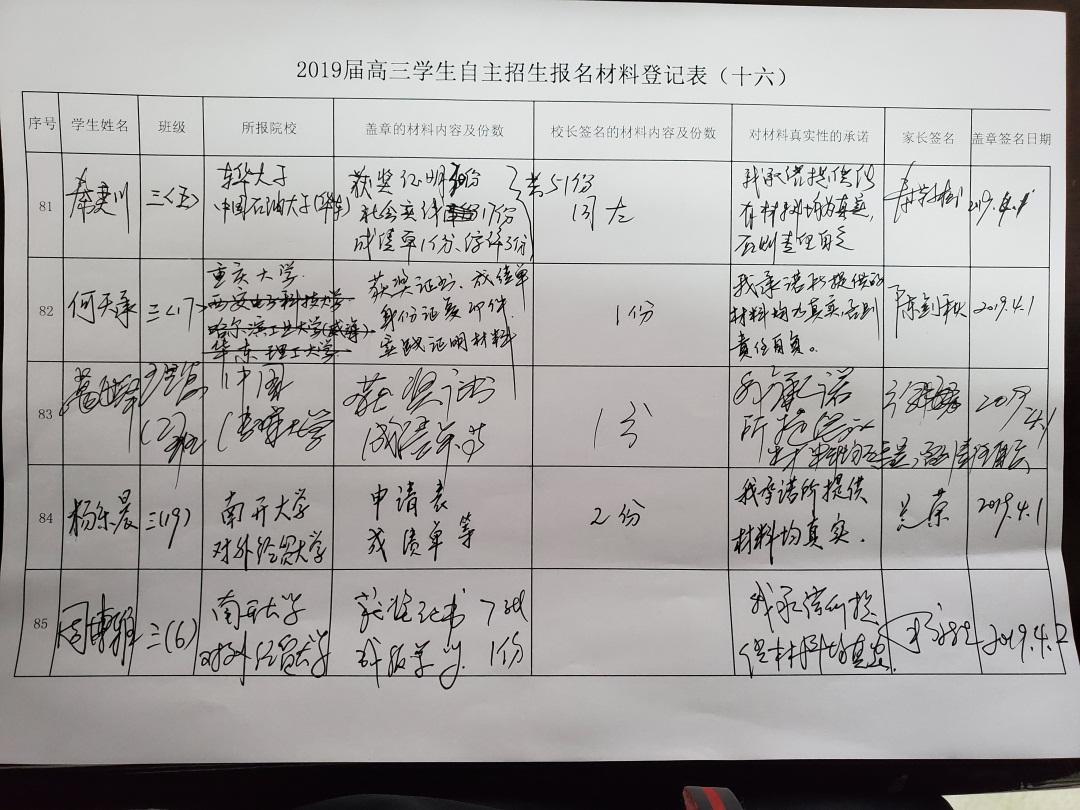 2019届高三学生自主招生报名材料登记表（十六）
序号 学生姓名 班级 所报院校 盖章的材料内容及份数 校长签名的材料内容及份数 对材料真实性的承诺 家长签名 盖章签名日期
81 三(五) 东华大学 获奖证明 共51份 我承诺提供所
中国石油大学(华东) 社会实践 17份 同左 有材料均为真实, 2019.4.1
成绩单1份、 否则责任自负
82 何天承 三(17) 重庆大学 获奖证书、成绩单 1份 我承诺所提供的 陈剑秋 2019.4.1
西安电子科技大学 身份证复印件 材料均为真实,否则
哈尔滨工业大学(威海) 实践证明材料 责任自负。
华东理工大学
83 中国 获奖证书 1份 我承诺 2019
(2)班 大学 成绩单 所提供 4.1
材料均
84 杨东晨 三(19) 南开大学 申请表 2份 我承诺所提供 兰荣 2019.4.1
对外经贸大学 成绩单等 材料均真实.
85 周博 三(6) 南开大学 获奖证书 7张 我承诺所提 2019.4.2
对外经贸大学 1份 供材料均真实.